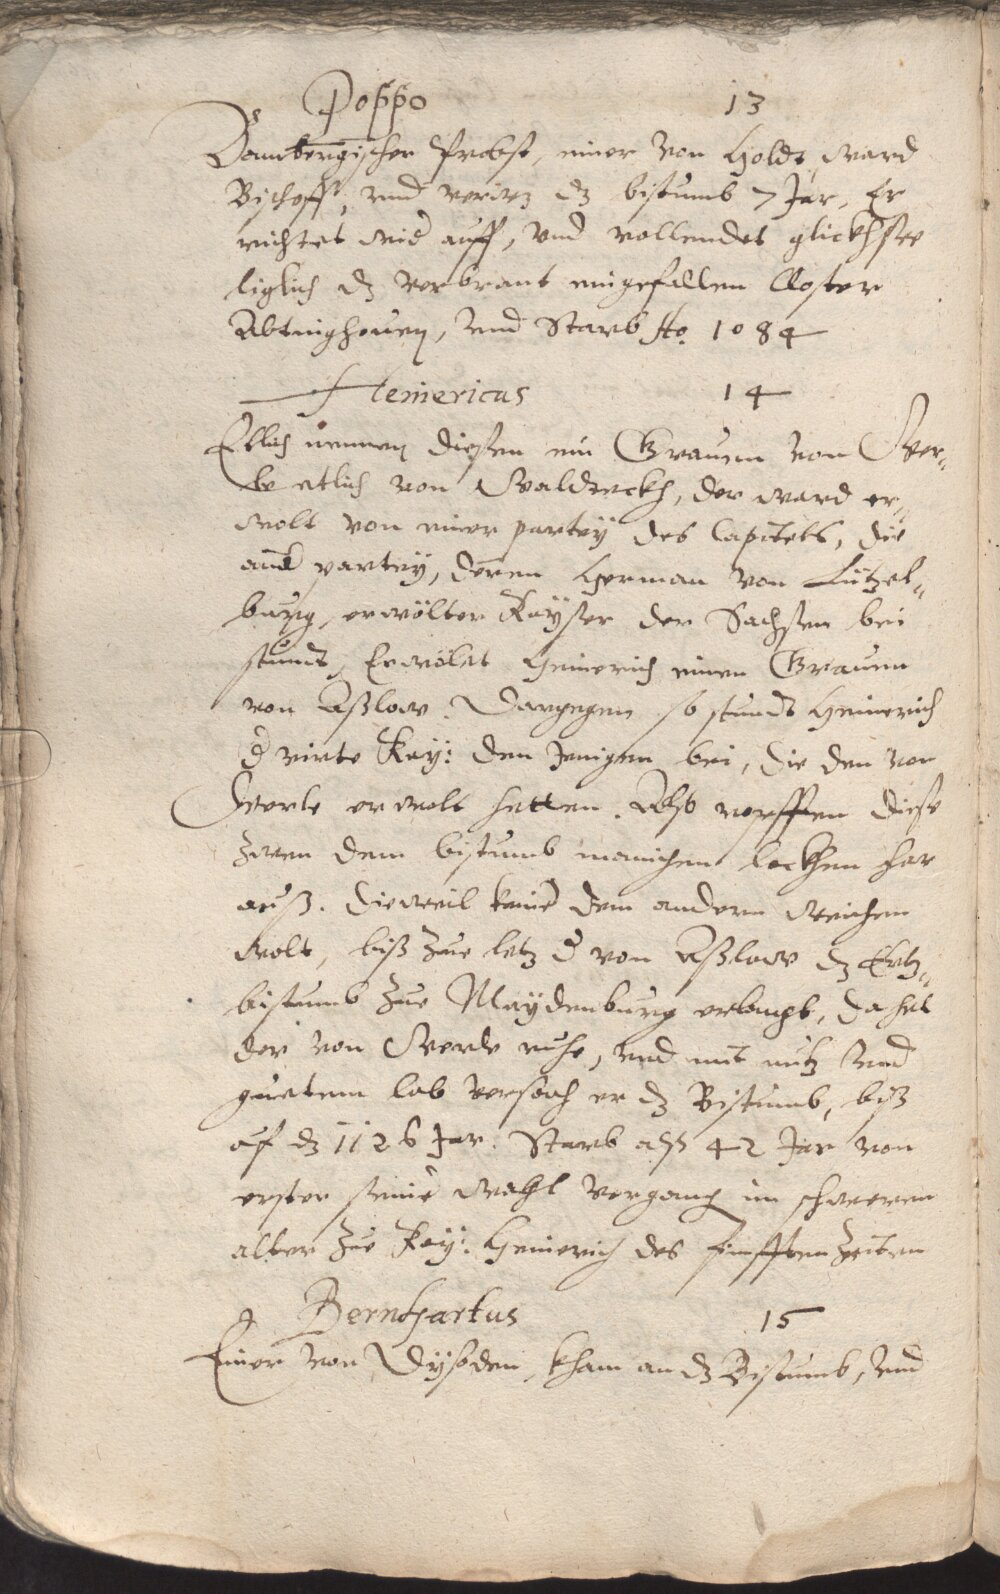 Poppo 13
Bambergischer Probst, einer von Holdt, ward
Bischoff, und verwes dz bistumb 7 Jar, Er
richtet wid auff, und vollendet glückhsee
liglich dz verbrant eingefallen Closter
Abtinghouen, und Starb Ao. 1084
Heinericus 14
Etlich nennen diesen ein Grauen von Wer„
le etlich von Waldeckh, der ward er„
wolt von einer partey des Capitels, die
and partey, deren Herman von Lützel„
burg, erwölter Kayser der Sachsen bei
stundt, Erwölet Heinerich einen Grauen
von Aßlow. Dargegen so stundt Heinerich
d virte Kay: den Jenigen bei, die den von
Werle erwolt hetten. Also rupfften diese
zwen dem bistumb manichen lockhen har
auß. Dieweil keine dem andern weichen
wolt, biß zue letz d von Aßlow dz Ertz„
bistumb zue Maydenburg erlangt, da het
der von Werle ruhe, und mit nutz und
guetem lob versach er dz Bistumb, biß
uf dz 1126 Jar. Starb alß 42 Jar von
erster seine wahl vergang im schweren
alter zue Kay: Heinerich des fünfften Zeiten
Bernhartus 15
Einer von Dysoden, kham an dz Bistumb, und